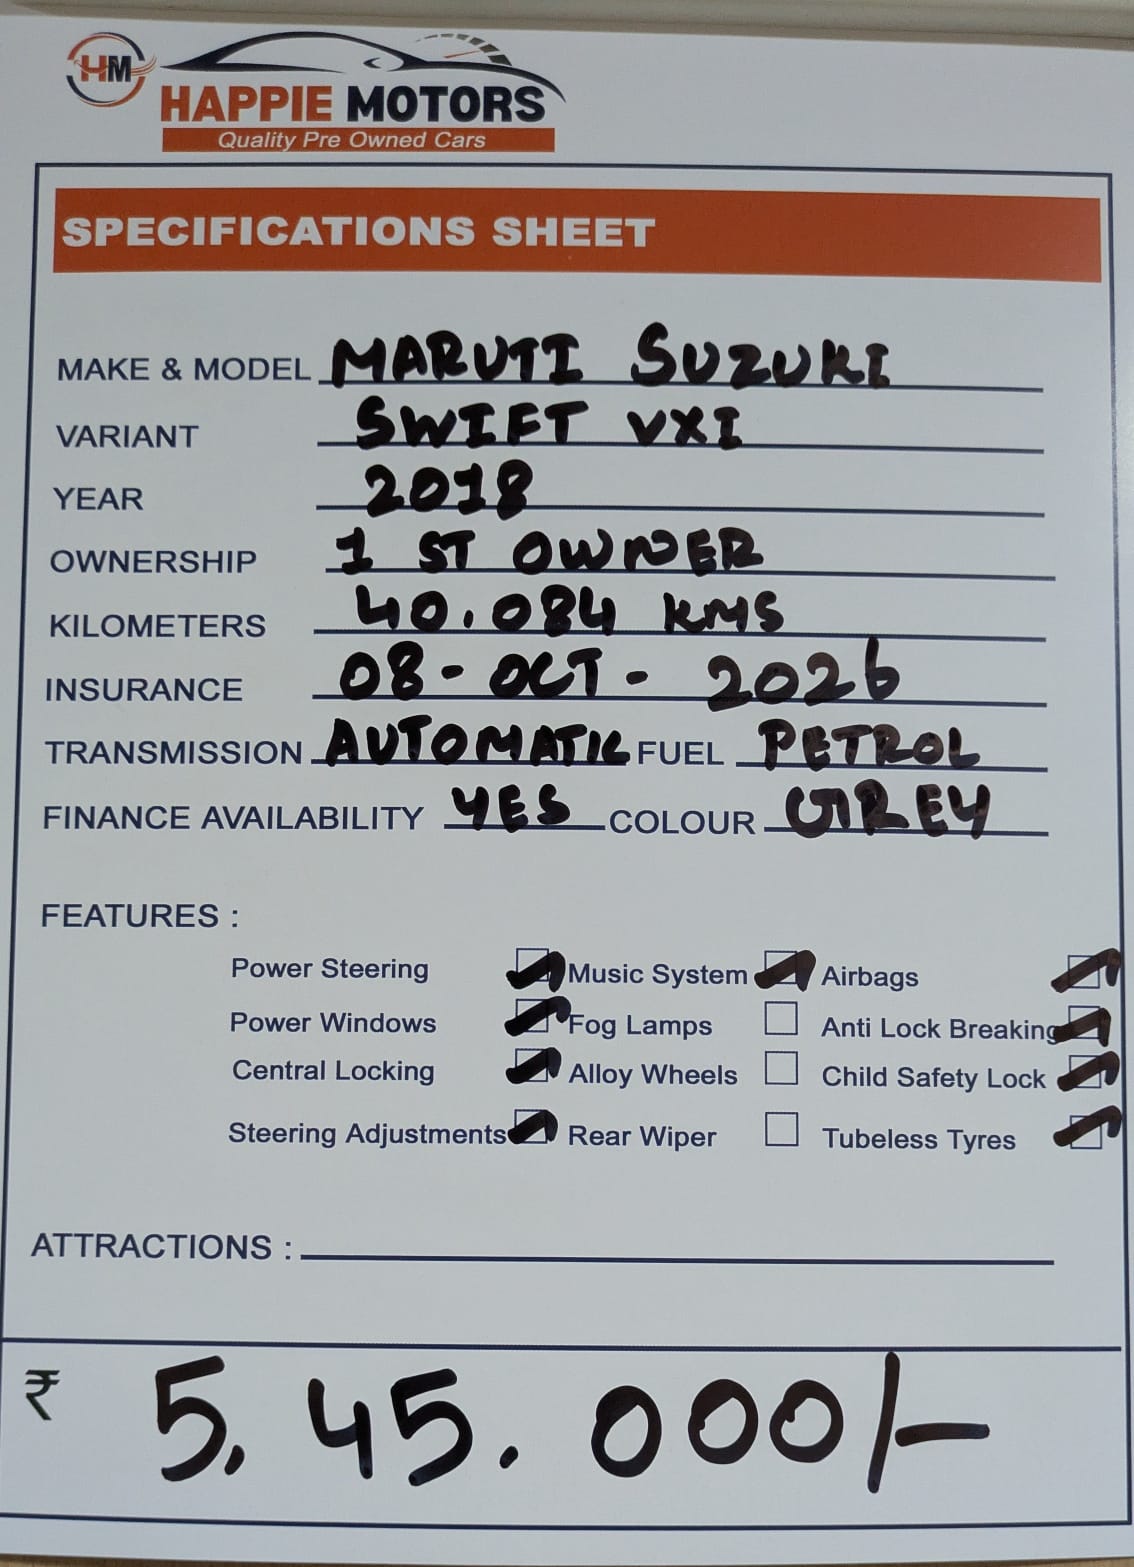 HM
HAPPIE MOTORS
Quality Pre Owned Cars
SPECIFICATIONS SHEET
MAKE & MODEL MARUTI SUZUKI
VARIANT SWIFT VXI
YEAR 2018
OWNERSHIP 1 ST OWNER
KILOMETERS 40.084 KMS
INSURANCE 08-OCT-2026
TRANSMISSION AUTOMATIC FUEL PETROL
FINANCE AVAILABILITY YES COLOUR GREY
FEATURES :
Power Steering Music System Airbags
Power Windows Fog Lamps Anti Lock Breaking
Central Locking Alloy Wheels Child Safety Lock
Steering Adjustments Rear Wiper Tubeless Tyres
ATTRACTIONS :
₹ 5,45.000/-